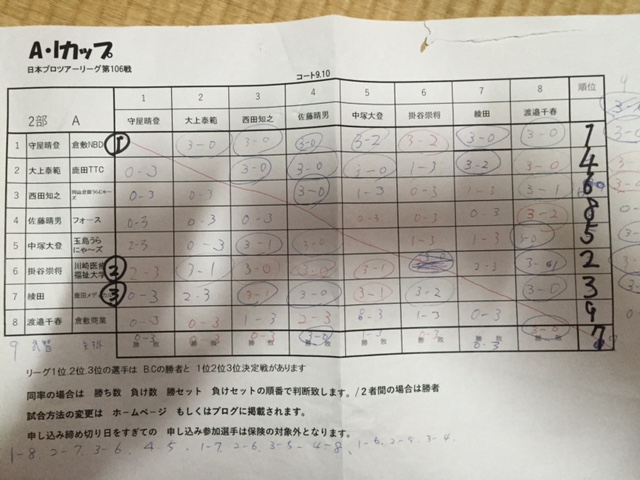 A・Iカップ
日本プロツアーリーグ第106戦
コート9.10
1 2 3 4 5 6 7 8 順位
2部 A 守屋晴登 大上泰範 西田知之 佐藤晴男 中塚大登 掛谷崇将 綾田 渡邉千春
1 守屋晴登 倉敷NBD 1 3-0 3-0 3-0 3-2 3-2 3-0 3-0 1
2 大上泰範 鹿田TTC 0-3 3-0 3-0 0-3 1-3 3-2 3-0 4
3 西田知之 0-3 0-3 3-0 1-3 0-3 1-3 3-1 6
4 佐藤晴男 フォース 0-3 0-3 0-3 0-3 0-3 0-3 3-2 8
5 中塚大登 玉島うらにゃーズ 2-3 0-3 3-1 3-0 1-3 1-3 3-0 5
6 掛谷崇将 川崎医療福祉大学 2 2-3 3-1 3-0 3-0 3-1 2-3 2
7 綾田 3 0-3 2-3 3-1 3-0 3-1 3-2 3-0 3
8 渡邉千春 倉敷商業 0-3 0-3 1-3 2-3 0-3 1-3 0-3 9
9 0-3 0-3 0-3 3-0 1-3 0-3 0-3 3-0 7
勝 敗 勝 敗 勝 敗 勝 敗 勝 敗 勝 敗 勝 敗 勝 敗
リーグ1位.2位.3位の選手は B.Cの勝者と 1位2位3位決定戦があります
同率の場合は 勝ち数 負け数 勝セット 負けセットの順番で判断致します。/2者間の場合は勝者
試合方法の変更は ホームページ もしくはブログに掲載されます。
申し込み締め切り日をすぎての 申し込み参加選手は保険の対象外となります。
1-8、2-7、3-6、4-5、1-7、2-6、3-5、4-8、1-6、2-5、3-4